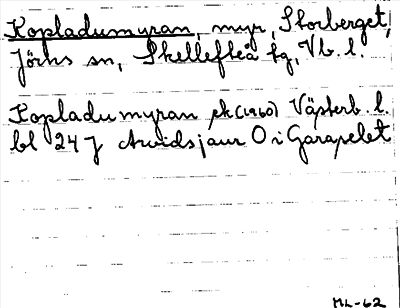 Kopladumyran, myr, Storberget,
Jörns sn, Skellefteå tg, Vb. l.
Kopladumyran ek (1960) Västerb. l.
bl 24 J Arvidsjaur O i Garapelet
ML-62